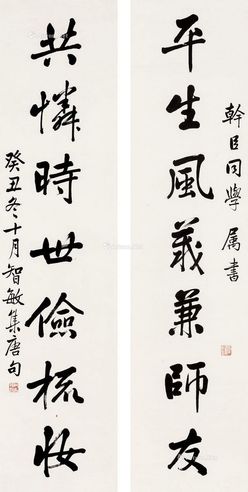 幹臣同學属書
平生風義兼師友
共憐時世儉梳妝
癸丑冬十月智敏集唐句